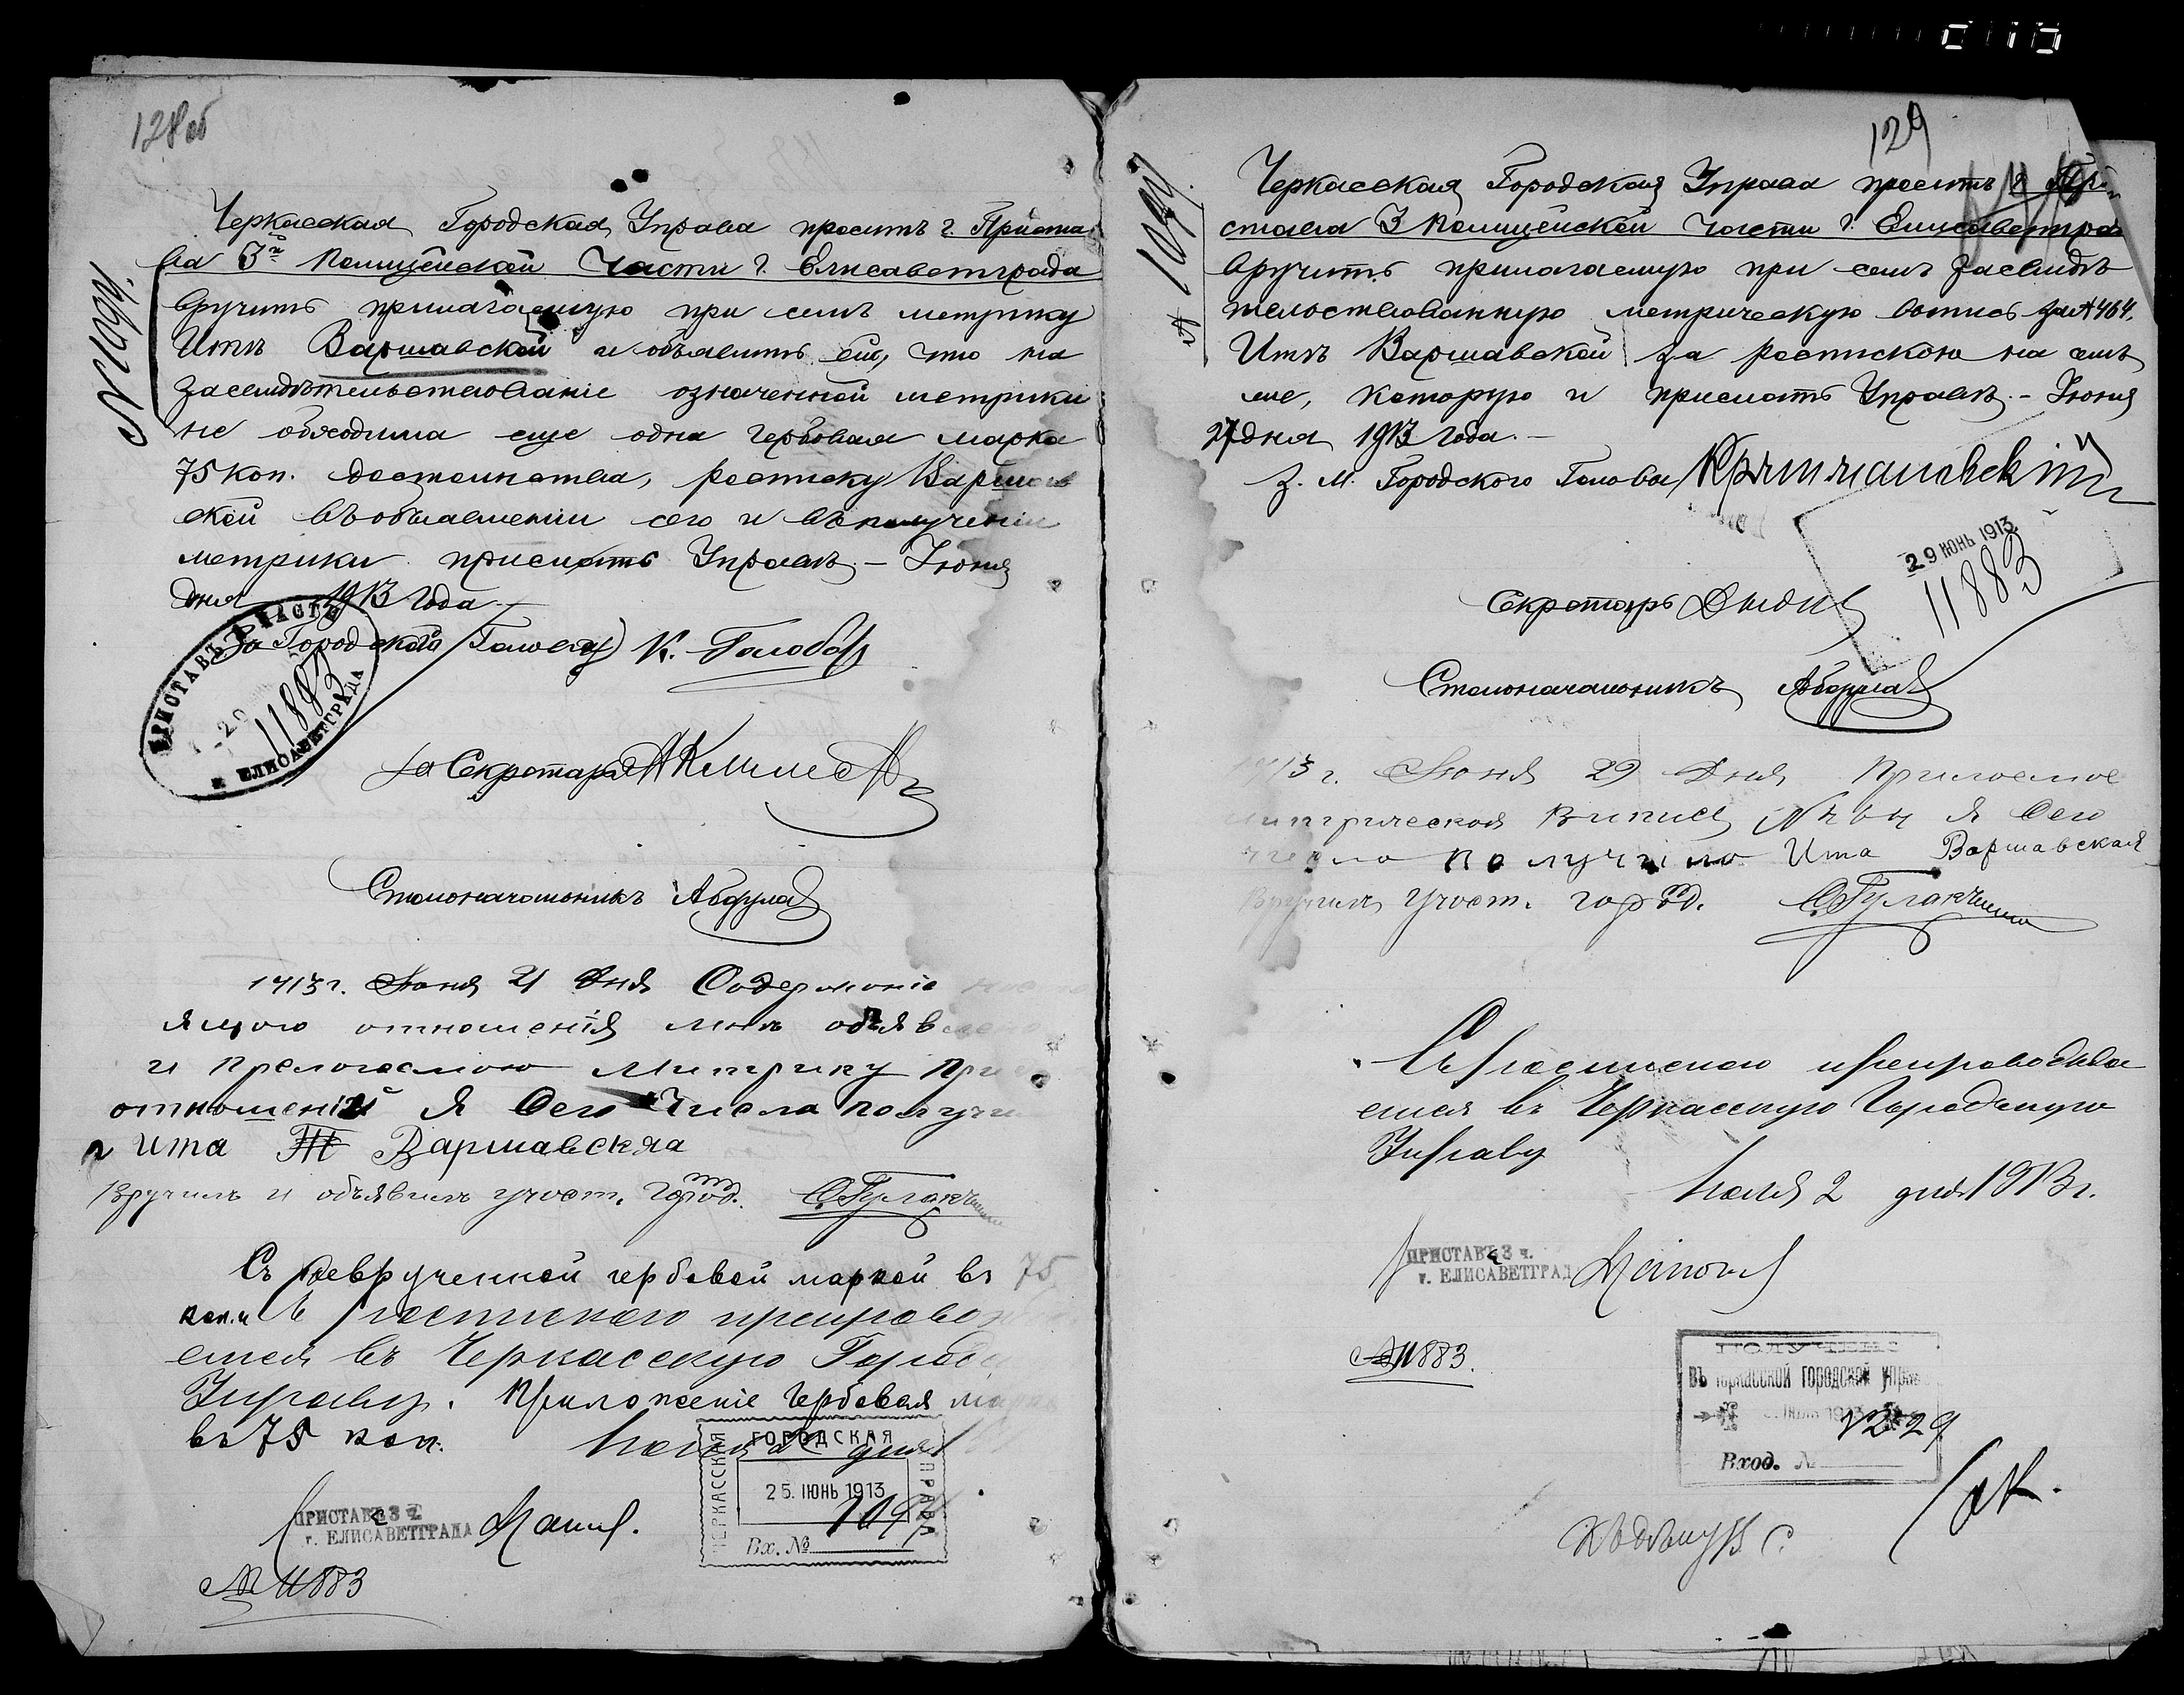 128 об
№ 1097.
Черкасская Городская Управа проситъ г. Приста
ва 3й Полицейской Части г. Елисаветграда
вручить прилагаемую при семъ метрику
Итѣ Варшавской и объявить ей, что на
засвидѣтельствованіе означенной метрики
не обходима еще одна гербовая марка
75 коп. достоинства, росписку Варшав
ской въ объявленіи сего и въ полученіи
метрики прислать Управѣ. - Іюня
дня 1913 года. -
За Городского Голову К.
ПРИСТАВЪ 3 ЧАСТИ
11883
Г. ЕЛИСАВЕТГРАДА
За Секретаря
Столоначальникъ
1913 г. Іюня 21 дня Содержаніе
ящого отношенія мнѣ объявлено
и прелогаемою Митрику при
отношеніи я сего числа получи
л Ита Варшавскяа
Вручилъ и объявилъ участ. город.
Съ деврученной гербовой маркой въ 75
коп. и съ роспискою препровож
ется въ Черкасскую Городс
Управу. Приложеніе гербовая марка
въ 75 коп. дня
ЧЕРКАССКАЯ ГОРОДСКАЯ УПРАВА
25. ІЮНЬ 1913
Вх. №
ПРИСТАВЪ 3 Ч.
г. ЕЛИСАВЕТГРАДА
№ 11883
129
№ 1097
Черкасская Городская Управа проситъ г. При-
става 3 Полицейской части г. Елисаветграда
вручить прилагаемую при семъ засвидѣ
тельствованную метрическую выпись за № 464.
Итѣ Варшавской за роспискою на семъ
же, которую и прислать Управѣ. - Іюня
27 дня 1913 года. -
З. М. Городского Головы
29 ІЮНЬ 1913
11883
Секретарь
Столоначальникъ
1913 г. Іюня 29 дня Прилоемое
митрическоя випись № 464 я сего
числа получило Ита Варшавская
Вручилъ участ. город.
Съ роспискою препровождае
ется въ Черкасскую Городскую
Управу
Іюля 2 дня 1913 г.
ПРИСТАВЪ 3 ч.
г. ЕЛИСАВЕТГРАД
№ 11883.
ПОЛУЧЕНО
ВЪ Черкасской ГОРОДСКОЙ УПРАВѢ
1913
1229
Вход. №